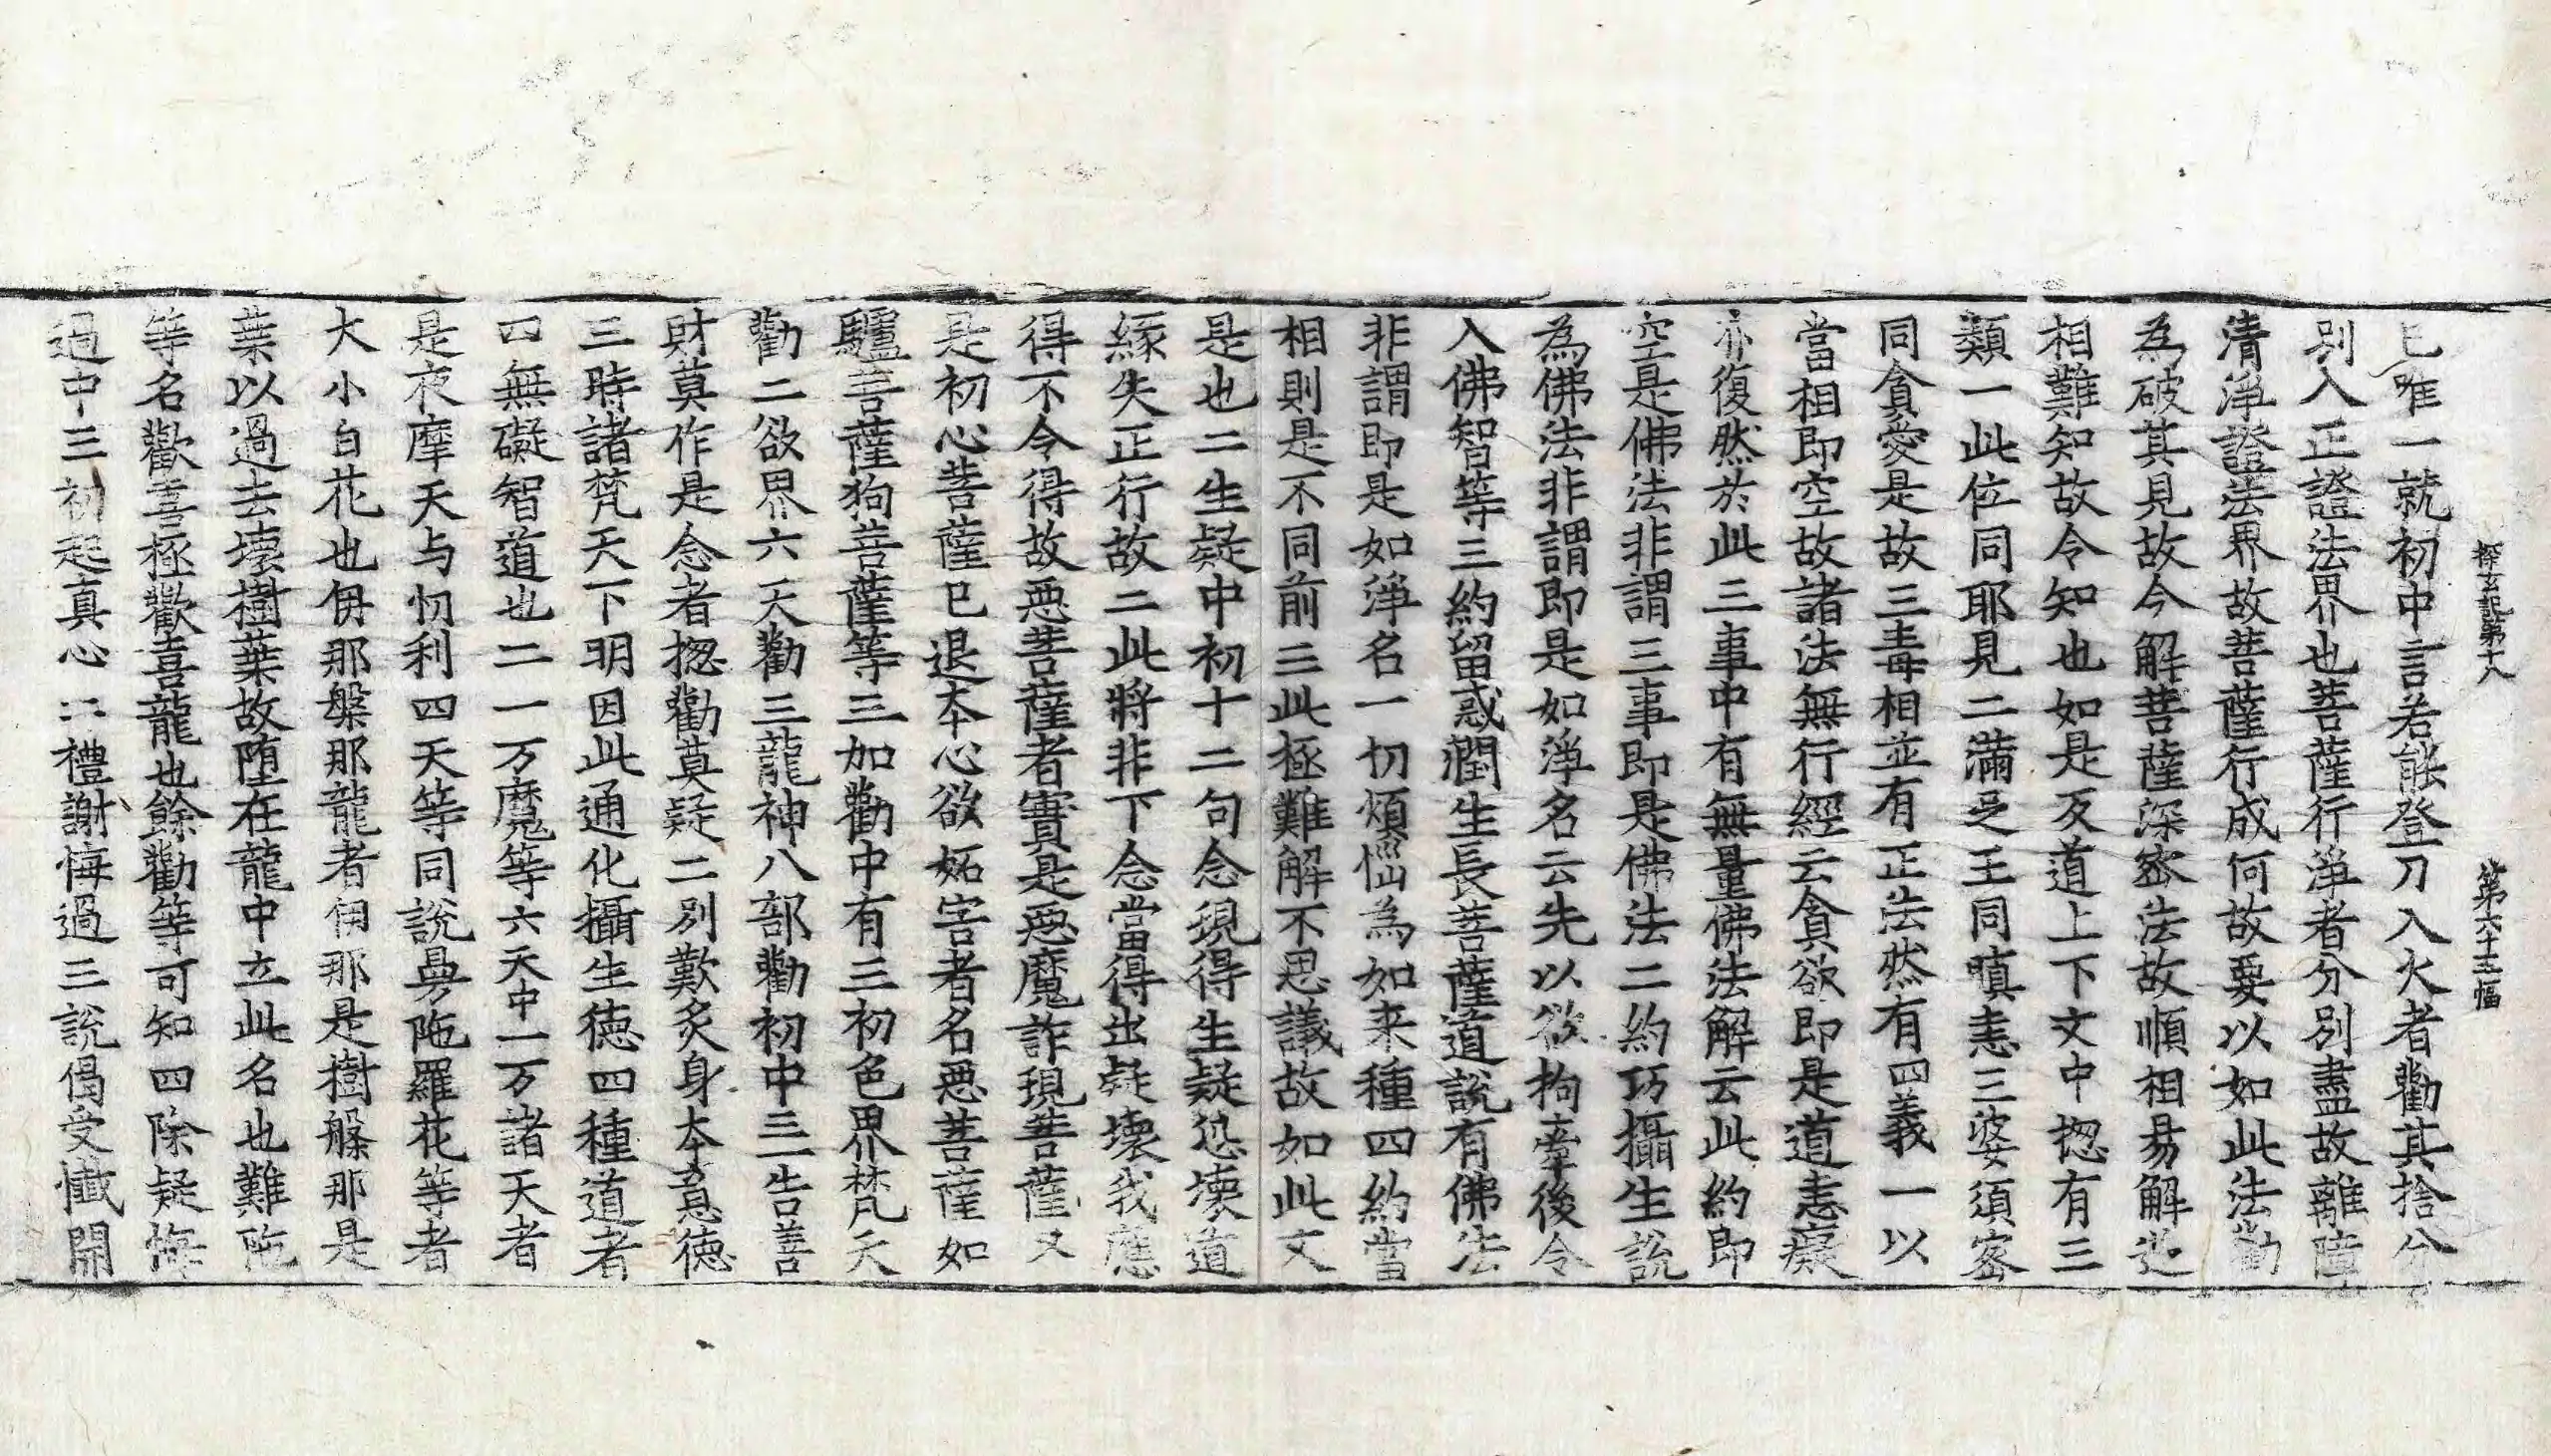 探玄記第十八 第六十五幅
已唯一就初中言若能登刀入火者勸其捨分
別入正證法界也菩薩行淨者分別盡故離障
清淨證法界故菩薩行成何故要以如此法勸
為破其見故今解菩薩深密法故順相易解迆
相難知故令知也如是反道上下文中揔有三
類一此位同耶見二滿足王同嗔恚三婆須密
同貪愛是故三毒相並有正法然有四義一以
當相即空故諸法無行經云貪欲即是道恚癡
亦復然於此三事中有無量佛法解云此約即
空是佛法非謂三事即是佛法二約巧攝生說
為佛法非謂即是如淨名云先以欲拘牽後令
入佛智等三約留惑潤生長菩薩道說有佛法
非謂即是如淨名一切煩惱為如来種四約當
相則是不同前三此極難解不思議故如此文
是也二生疑中初十二句念現得生疑恐壊道
緣失正行故二此將非下念當得出疑壊我應
得不令得故惡菩薩者實是惡魔詐現菩薩又
是初心菩薩已退本心欲妬害者名惡菩薩如
驢菩薩狗菩薩等三加勸中有三初色界梵天
勸二欲界六天勸三龍神八部勸初中三一告善
財莫作是念者揔勸莫疑二別歎炙身本意德
三時諸梵天下明因此通化攝生德四種道者
四無礙智道也二一万魔等六天中一万諸天者
是夜摩天与忉利四天等同說㝵陁羅花等者
大小白花也伊那槃那龍者伊那是樹槃那是
葉以過去壊樹葉故墮在龍中立此名也難陁
等名歡喜極歡喜龍也餘勸等可知四除疑悔
過中三初起真心二禮謝悔過三說偈受懺開